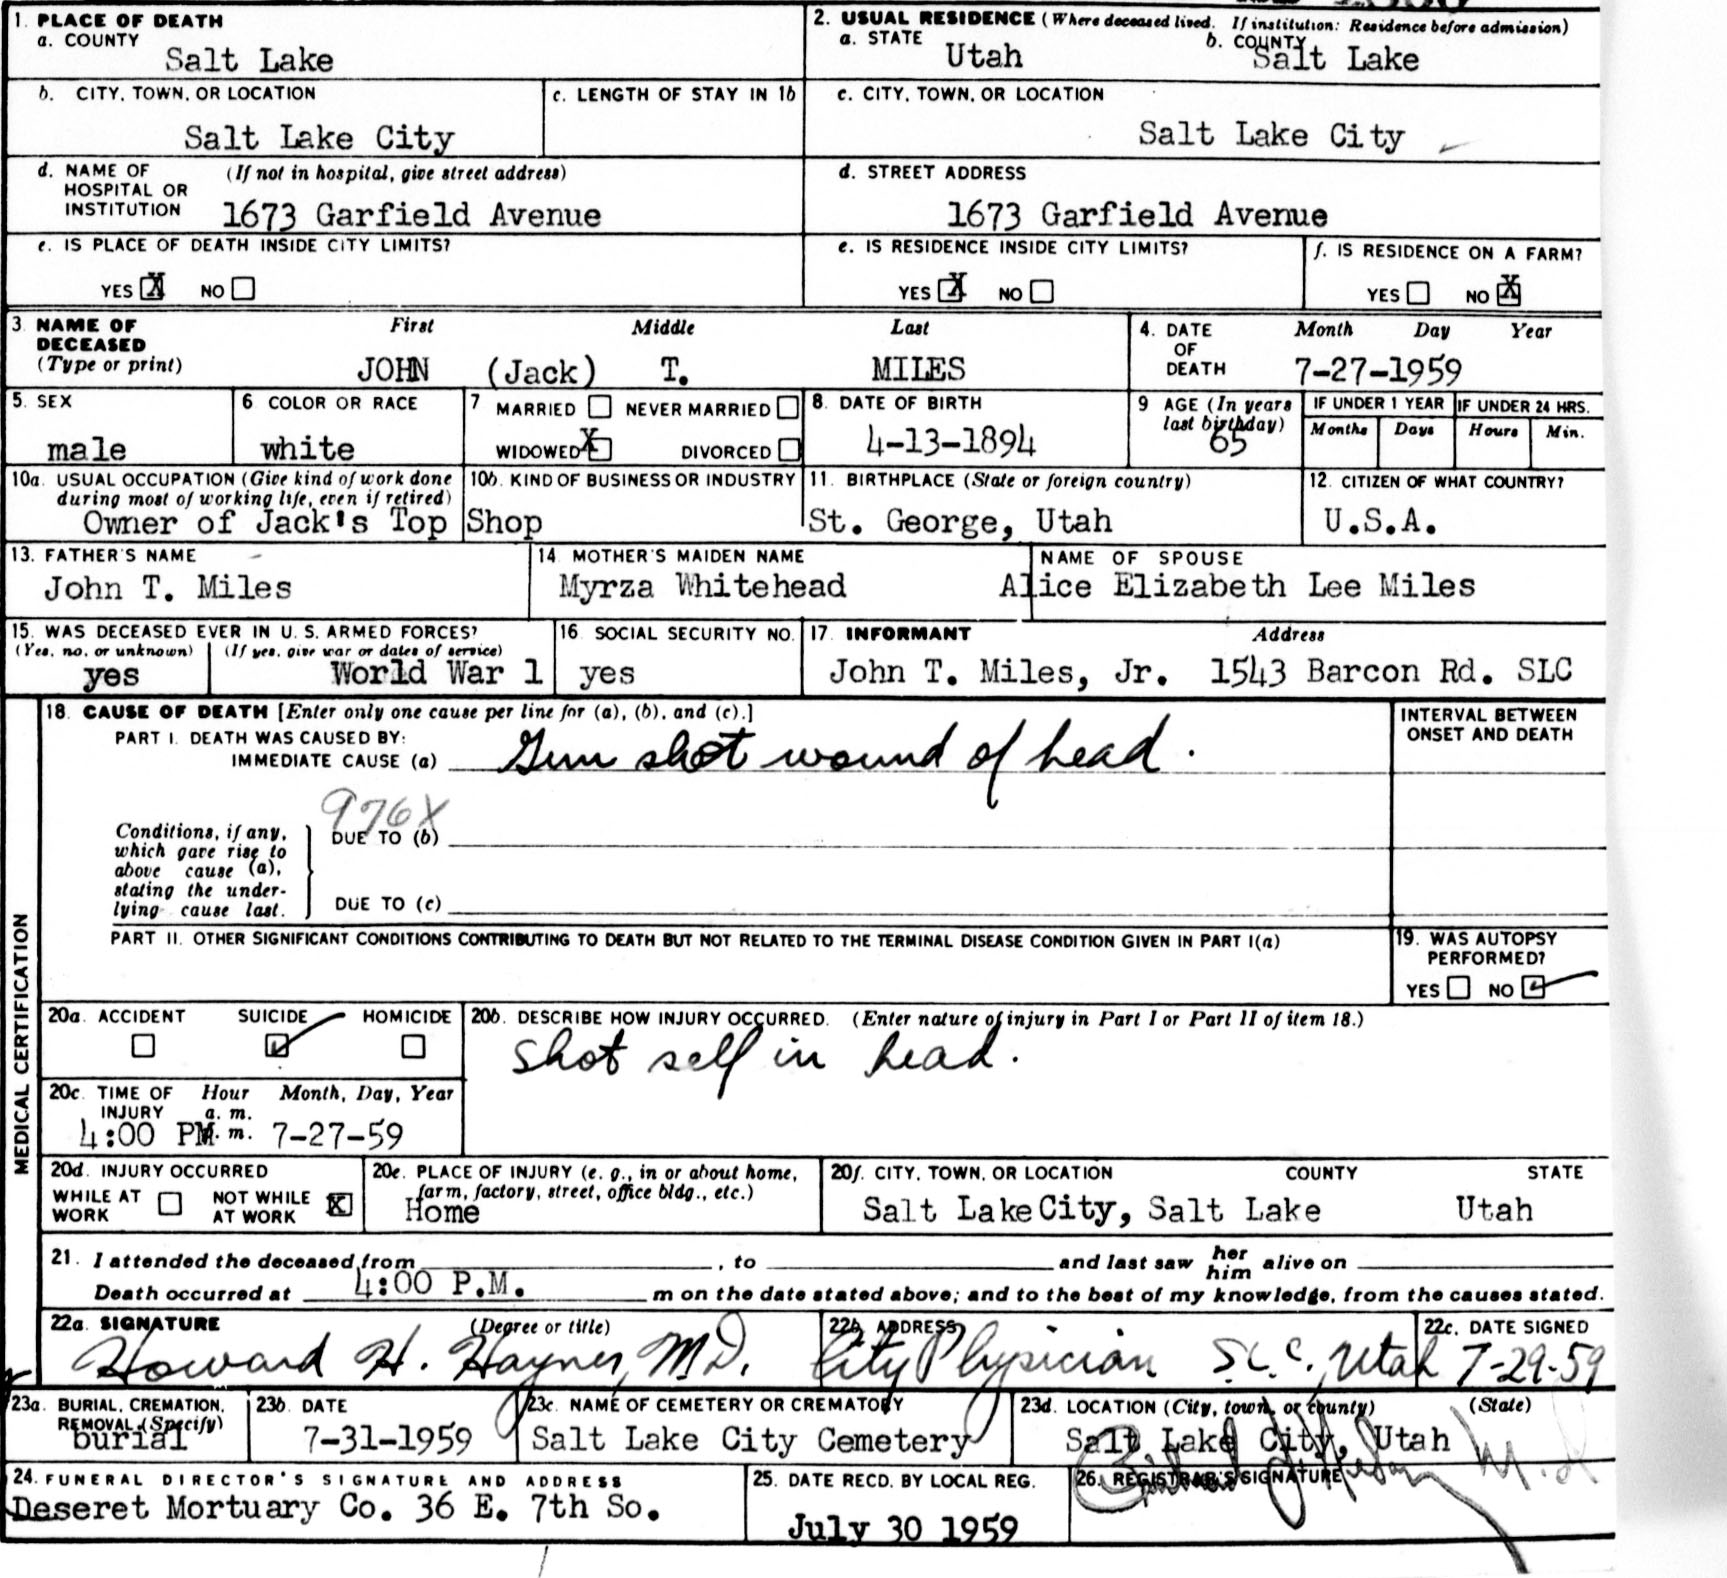 1. PLACE OF DEATH
a. COUNTY
Salt Lake
2. USUAL RESIDENCE (Where deceased lived. If institution: Residence before admission)
a. STATE Utah b. COUNTY Salt Lake
b. CITY, TOWN, OR LOCATION
Salt Lake City
c. LENGTH OF STAY IN 1b
c. CITY, TOWN, OR LOCATION
Salt Lake City
d. NAME OF HOSPITAL OR INSTITUTION (If not in hospital, give street address)
1673 Garfield Avenue
d. STREET ADDRESS
1673 Garfield Avenue
e. IS PLACE OF DEATH INSIDE CITY LIMITS?
YES X NO
e. IS RESIDENCE INSIDE CITY LIMITS?
YES X NO
f. IS RESIDENCE ON A FARM?
YES NO X
3. NAME OF DECEASED (Type or print)
First Middle Last
JOHN (Jack) T. MILES
4. DATE OF DEATH
Month Day Year
7-27-1959
5. SEX
male
6 COLOR OR RACE
white
7 MARRIED NEVER MARRIED
WIDOWED X DIVORCED
8. DATE OF BIRTH
4-13-1894
9 AGE (In years last birthday)
65
IF UNDER 1 YEAR
Months Days
IF UNDER 24 HRS.
Hours Min.
10a. USUAL OCCUPATION (Give kind of work done during most of working life, even if retired)
Owner of Jack's Top
10b. KIND OF BUSINESS OR INDUSTRY
Shop
11. BIRTHPLACE (State or foreign country)
St. George, Utah
12. CITIZEN OF WHAT COUNTRY?
U.S.A.
13. FATHER'S NAME
John T. Miles
14 MOTHER'S MAIDEN NAME
Myrza Whitehead
NAME OF SPOUSE
Alice Elizabeth Lee Miles
15. WAS DECEASED EVER IN U. S. ARMED FORCES?
(Yes, no, or unknown) (If yes, give war or dates of service)
yes World War 1
16 SOCIAL SECURITY NO.
yes
17. INFORMANT Address
John T. Miles, Jr. 1543 Barcon Rd. SLC
MEDICAL CERTIFICATION
18. CAUSE OF DEATH [Enter only one cause per line for (a), (b), and (c).]
PART I. DEATH WAS CAUSED BY:
IMMEDIATE CAUSE (a) Gun shot wound of head.
INTERVAL BETWEEN ONSET AND DEATH
976X
Conditions, if any, which gave rise to above cause (a), stating the underlying cause last.
DUE TO (b)
DUE TO (c)
PART II. OTHER SIGNIFICANT CONDITIONS CONTRIBUTING TO DEATH BUT NOT RELATED TO THE TERMINAL DISEASE CONDITION GIVEN IN PART I(a)
19. WAS AUTOPSY PERFORMED?
YES NO
20a. ACCIDENT SUICIDE HOMICIDE
20b. DESCRIBE HOW INJURY OCCURRED. (Enter nature of injury in Part I or Part II of item 18.)
Shot self in head.
20c. TIME OF INJURY Hour Month, Day, Year
a. m.
4:00 PM p. m. 7-27-59
20d. INJURY OCCURRED
WHILE AT WORK NOT WHILE AT WORK X
20e. PLACE OF INJURY (e. g., in or about home, farm, factory, street, office bldg., etc.)
Home
20f. CITY, TOWN, OR LOCATION COUNTY STATE
Salt Lake City, Salt Lake Utah
21. I attended the deceased from , to and last saw her him alive on
Death occurred at 4:00 P.M. m on the date stated above; and to the best of my knowledge, from the causes stated.
22a. SIGNATURE (Degree or title)
Howard H. Haynes, M.D.
22b. ADDRESS
City Physician S.L.C., Utah
22c. DATE SIGNED
7-29-59
23a. BURIAL, CREMATION, REMOVAL (Specify)
burial
23b. DATE
7-31-1959
23c. NAME OF CEMETERY OR CREMATORY
Salt Lake City Cemetery
23d. LOCATION (City, town, or county) (State)
Salt Lake City, Utah
24. FUNERAL DIRECTOR'S SIGNATURE AND ADDRESS
Deseret Mortuary Co. 36 E. 7th So.
25. DATE RECD. BY LOCAL REG.
July 30 1959
26. REGISTRAR'S SIGNATURE